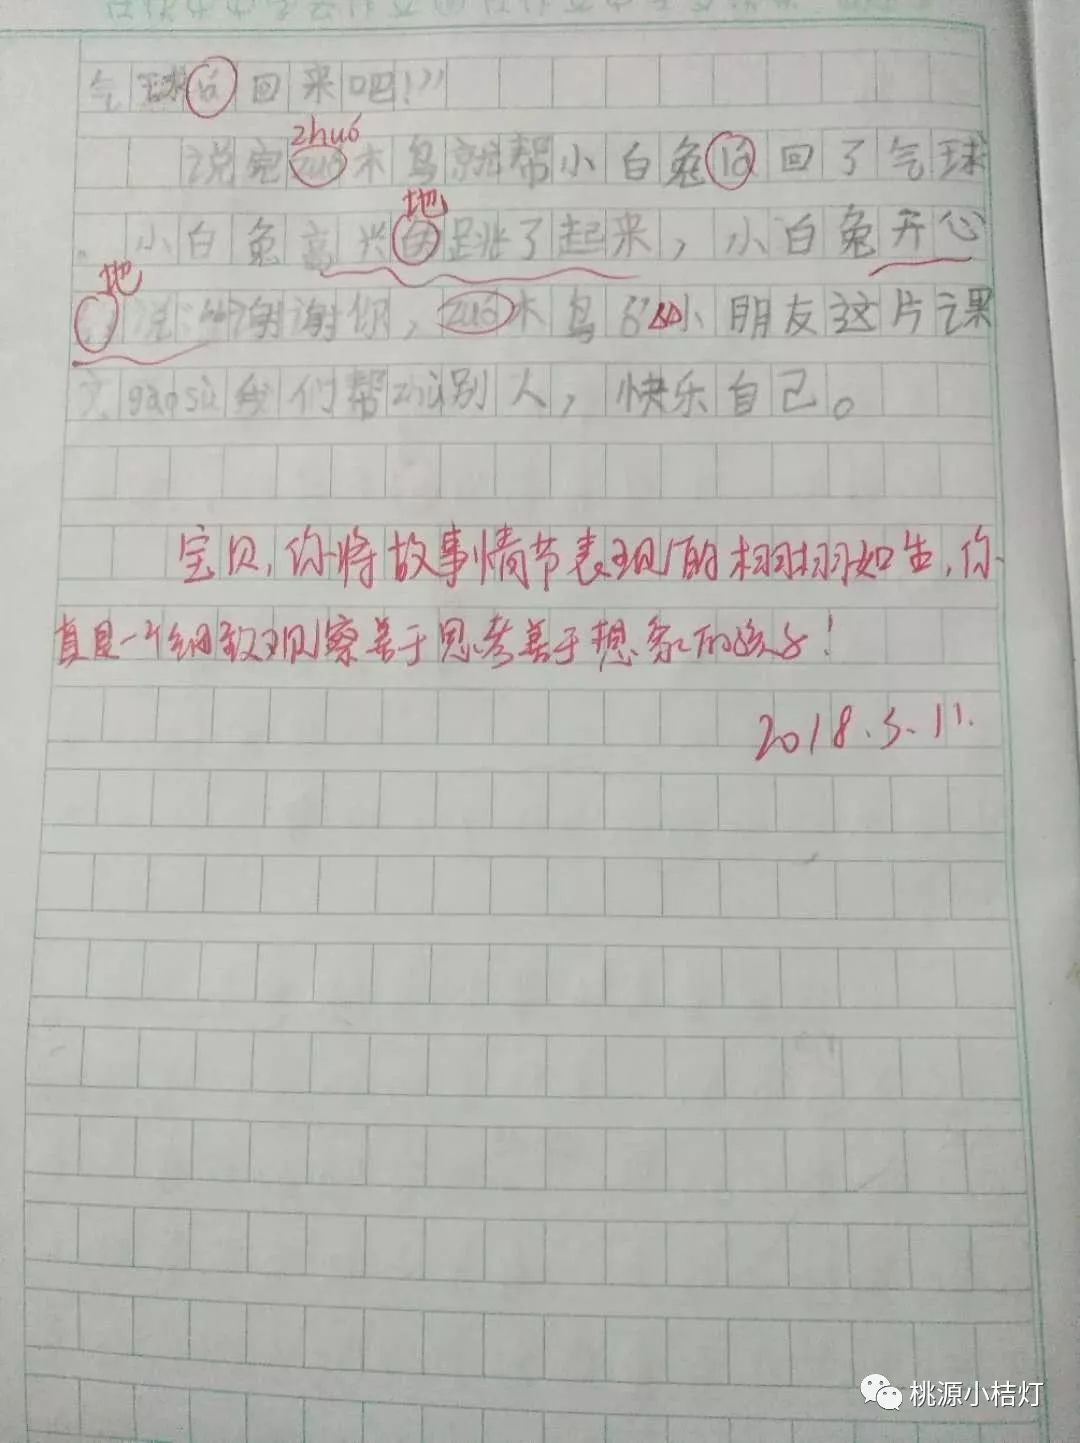 气球 回来吧!”
zhuó
说完zuó木鸟就帮小白兔 回了气球
地
。小白兔高兴的跳了起来，小白兔开心
地
说:“谢谢你，zuó木鸟 小朋友这片课
文gàosù我们帮zhù别人，快乐自己。
宝贝，你将故事情节表现的栩栩如生，你
真是一个细致观察善于思考善于想象的孩子！
2018.3.11.
桃源小桔灯